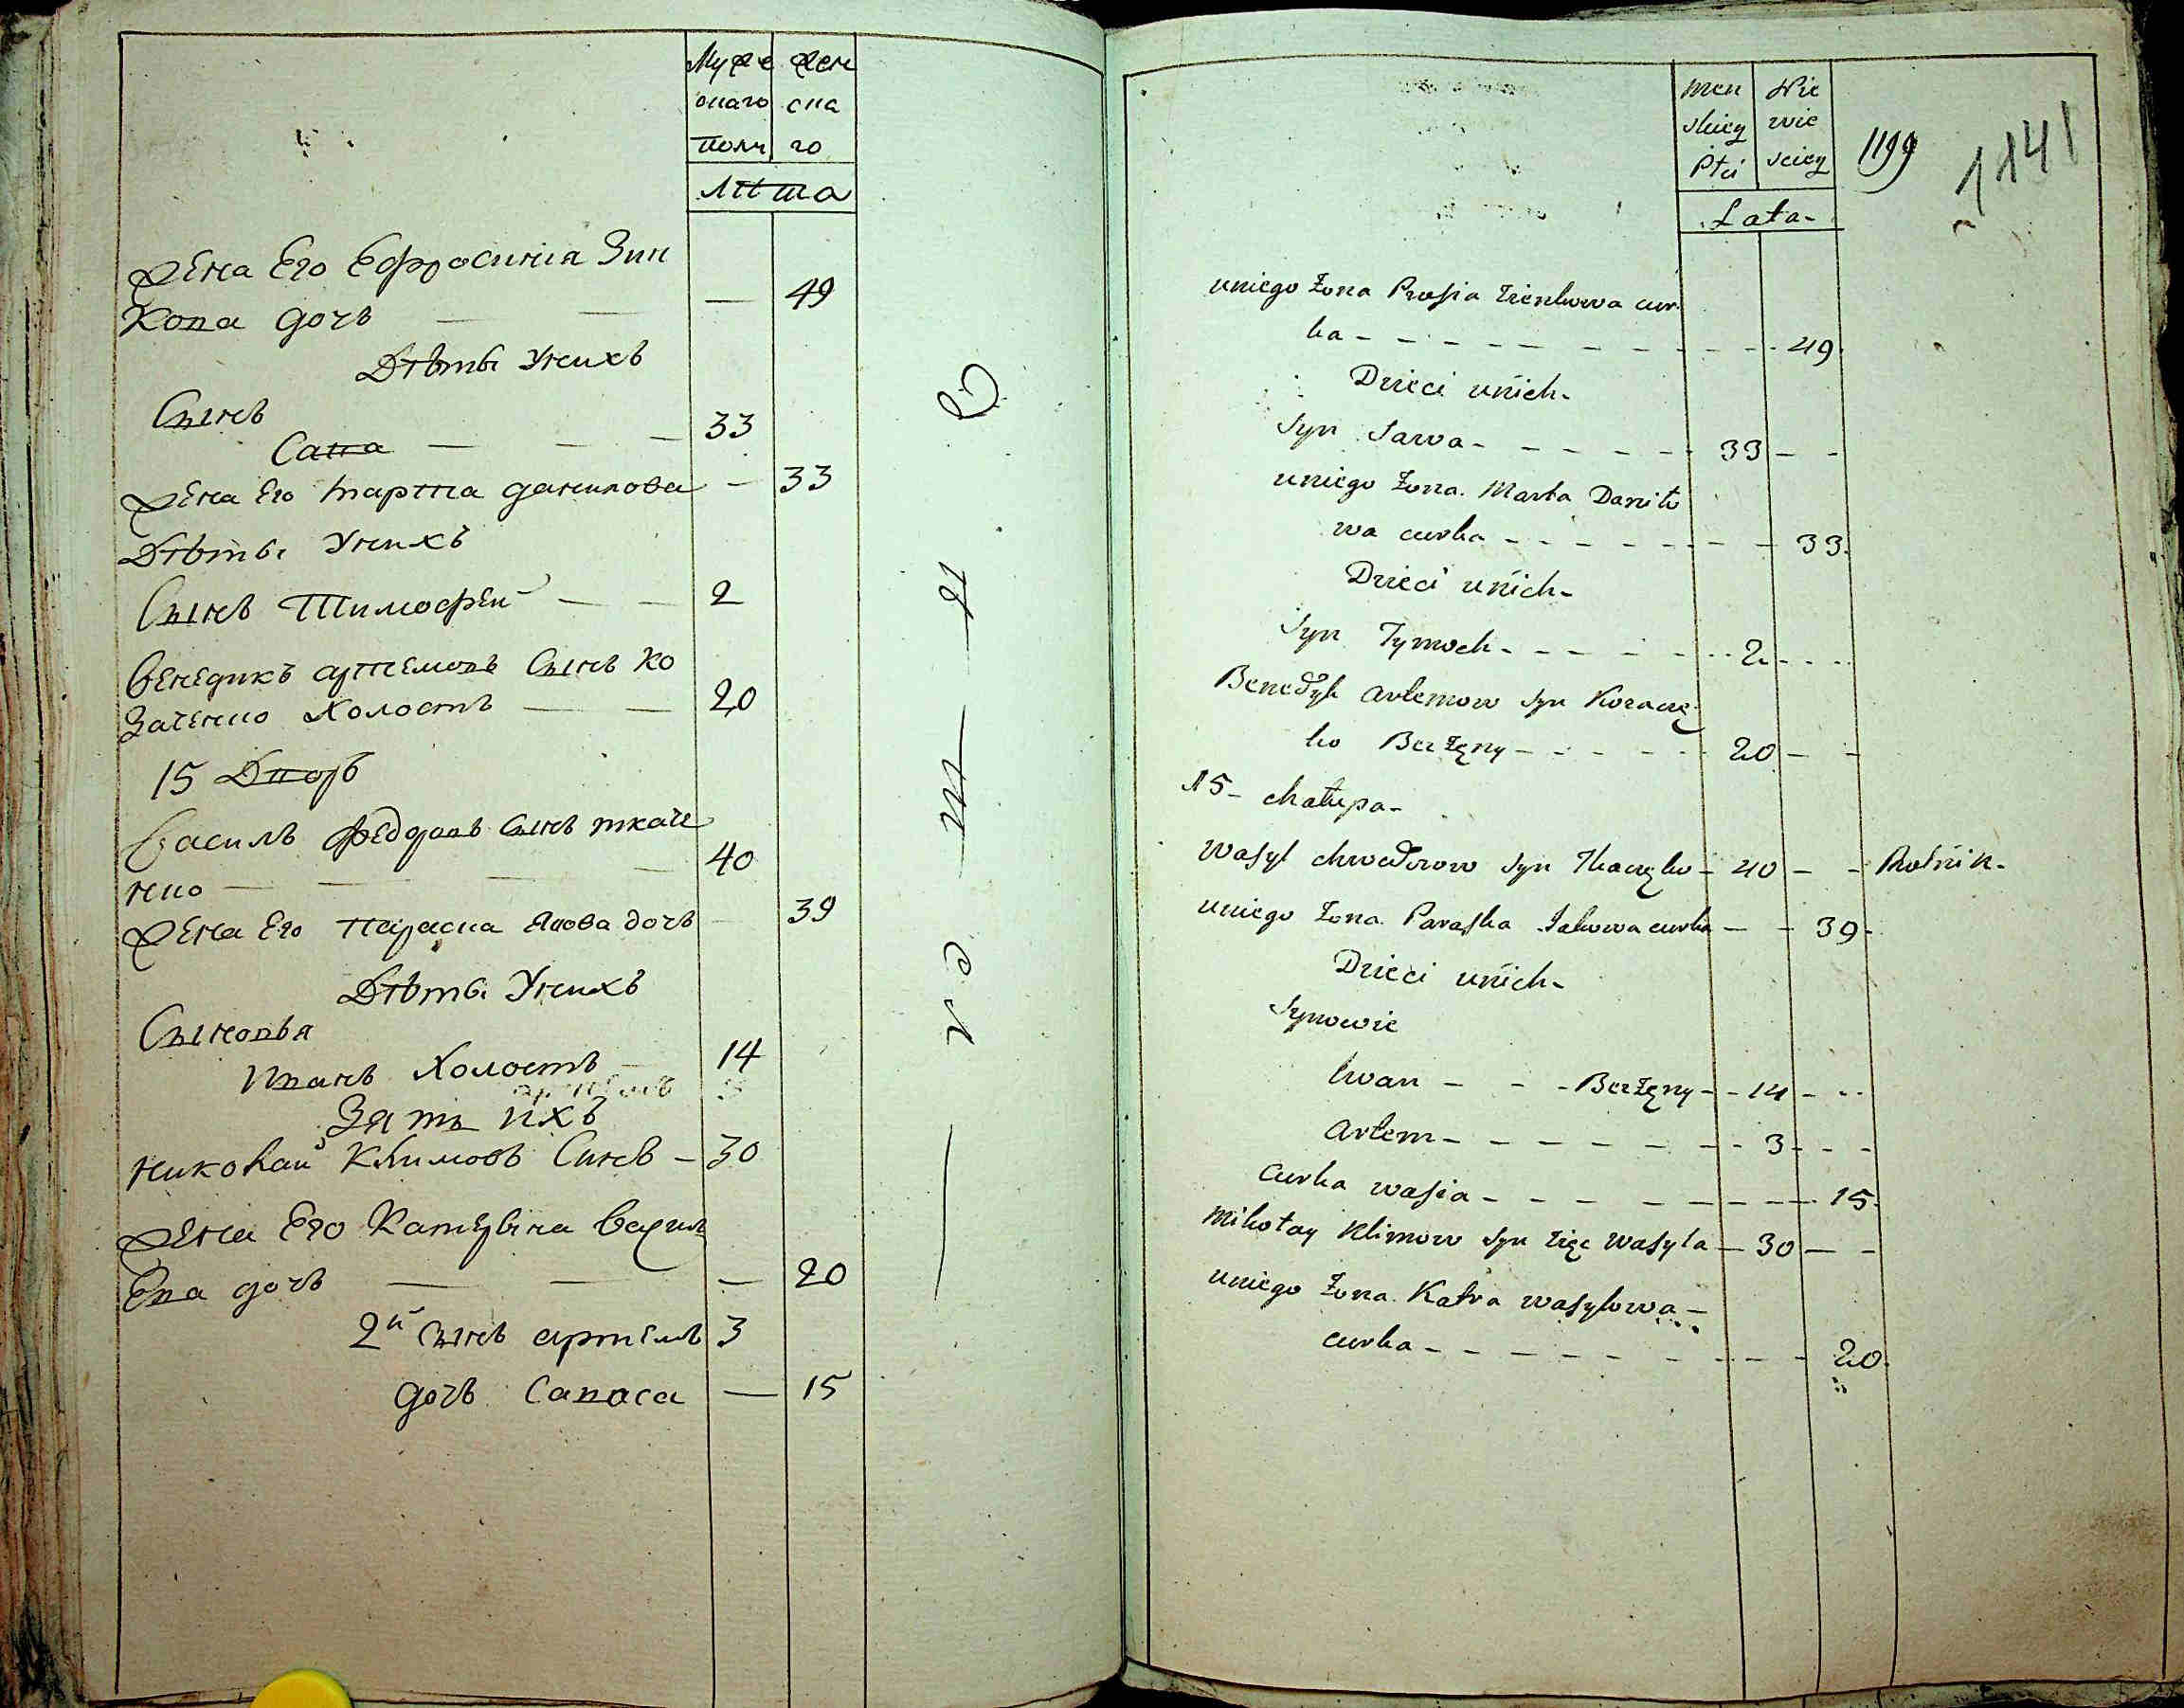 Муже жен
скаго ска
полу го
Лѣта
Жена Его Ефросинія Зин
кова дочь — — — 49
Дѣты Унихъ
Сынъ
Сава — — — 33
Жена Его марта данилова — 33
Дѣты Унихъ
Сынъ Тимофей — — 2
Венедикъ артемовъ Сынъ Ко
заченко Холостъ — — 20
15 Дворъ
Василь Федоровъ Сынъ ткаче
нко — — — — 40
Жена Его Параска Якова дочь — 39
Дѣты Унихъ
Сыновья
Иванъ Холостъ — 14
артемъ 3
Зять ихъ
Николай Климовъ Синъ — 30
Жена Его Катерина васил
Ева дочь — — — 20
2й Сынъ артемъ 3
дочь Саваса — 15
men Nie
skiey wie
płci sciey
Łata
1199
1141
uniego Żona Prosia Zienkowa cur
ka - - - - - - - - - 49
Dzieci unich
Syn Sawa - - - - - - 33 - -
uniego Żona Marta Daniło
wa curka - - - - - - - 33
Dzieci unich
Syn Tymoch - - - - - 2 - - -
Benedyk Artemow Syn Kozaczę
ko Berżęny - - - - - 20 - -
15 - chałupa -
Wasyl Chwedorow Syn Tkaczęko - 40 - - Rolnik -
uniego Żona Paraska Jakowa curka - - 39 -
Dzieci unich
Synowie
Iwan - - - Berżęny - - 14 - - -
Artem - - - - - - - - 3 - - -
Curka Wasia - - - - - - - - 15
Mikołay Klimow Syn Zięc Wasyla - 30 - -
uniego Żona Katra Wasylowa -
curka - - - - - - - - - 20